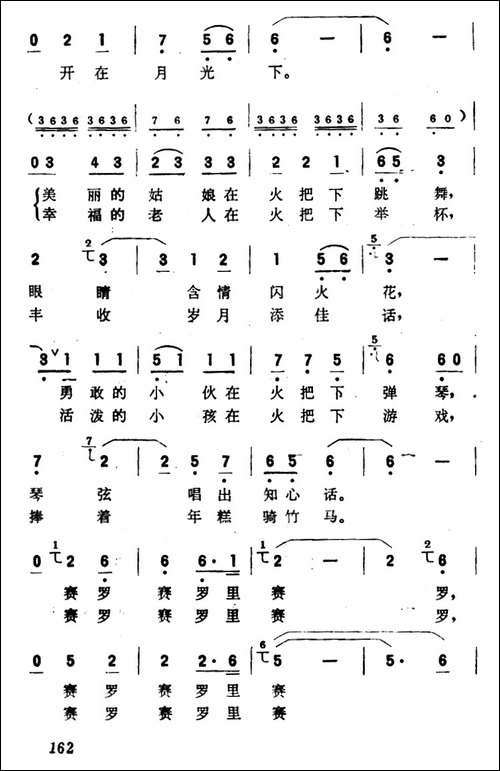 0 2 1 | 7 5 6 | 6 — | 6 —
开 在 月 光 下。
( 3636 3636 | 7 6 7 6 | 3636 3636 | 3 6 6 0 )
0 3 4 3 | 2 3 3 | 2 2 1 | 6 5 3
美 丽 的 姑 娘 在 火 把 下 跳 舞,
幸 福 的 老 人 在 火 把 下 举 杯,
2 2 3 | 3 1 2 | 1 5 6 | 5 3 —
眼 睛 含 情 闪 火 花,
丰 收 岁 月 添 佳 话,
3 ∨ 1 1 1 | 5 1 1 | 7 7 5 | 5 6 6 0
勇 敢 的 小 伙 在 火 把 下 弹 琴,
活 泼 的 小 孩 在 火 把 下 游 戏,
7 7 2 | 2 5 7 | 6 5 6 | 6 —
琴 弦 唱 出 知 心 话。
捧 着 年 糕 骑 竹 马。
0 1 2 6 | 6 6 · 1 | 1 2 — | 2 2 6
赛 罗 赛 罗 里 赛 罗,
赛 罗 赛 罗 里 赛 罗,
0 5 2 | 2 2 · 6 | 6 5 — | 5 · 6
赛 罗 赛 罗 里 赛
赛 罗 赛 罗 里 赛
162